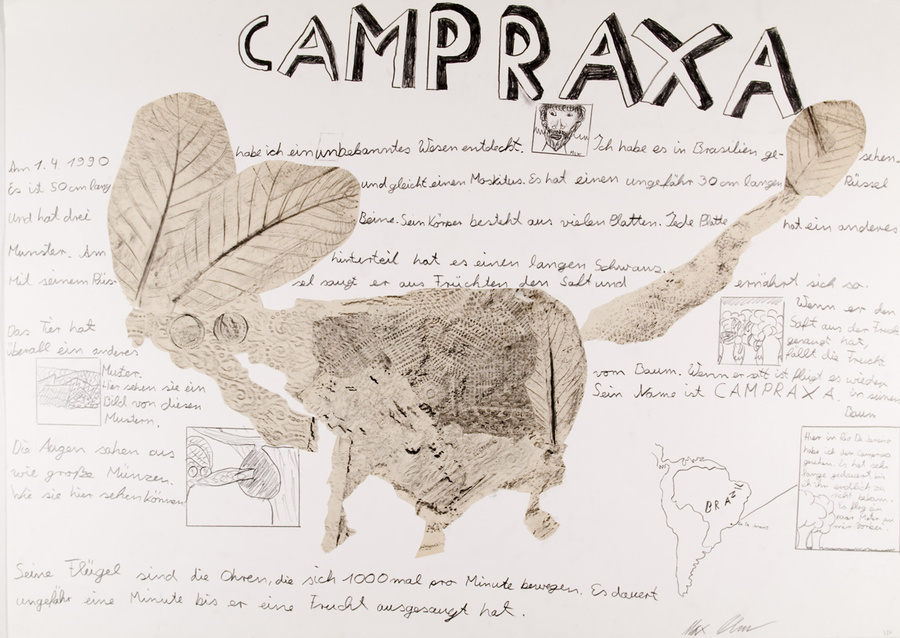 CAMPRAXA
Am 1.4.1990 habe ich ein unbekanntes Wesen entdeckt. Ich habe es in Brasilien ge- sehen.
Es ist 50 cm lang und gleicht einen Moskitus. Es hat einen ungefähr 30 cm langen Rüssel
und hat drei Beine. Sein Körper besteht aus vielen Platten. Jede Platte hat ein anderes
Munster. Am hinterteil hat es einen langen Schwanz.
Mit seinem Rüs- sel saugt er aus Früchten den Saft und ernährt sich so.
Das Tier hat
überall ein anderes
Muster.
Hier sehen sie ein
Bild von diesen
Mustern.
Die Augen sehen aus
wie große Münzen.
Wie sie hier sehen können
Wenn er den
Saft aus der Frucht
gesaugt hat,
fällt die Frucht
vom Baum. Wenn er satt ist fliegt es wieder
Sein Name ist CAMPRAXA. in seinen
Baum
BRAZIL
Hier in Rio De Janeiro
habe ich den Campraxa
gesehen. Es hat sehr
lange gedauert bis
ich ihn endlich zu
sicht bekam.
Er flog ein
paar Meter an
mir vorbei.
Seine Flügel sind die Ohren, die sich 1000 mal pro Minute bewegen. Es dauert
ungefähr eine Minute bis er eine Frucht ausgesaugt hat.
Max